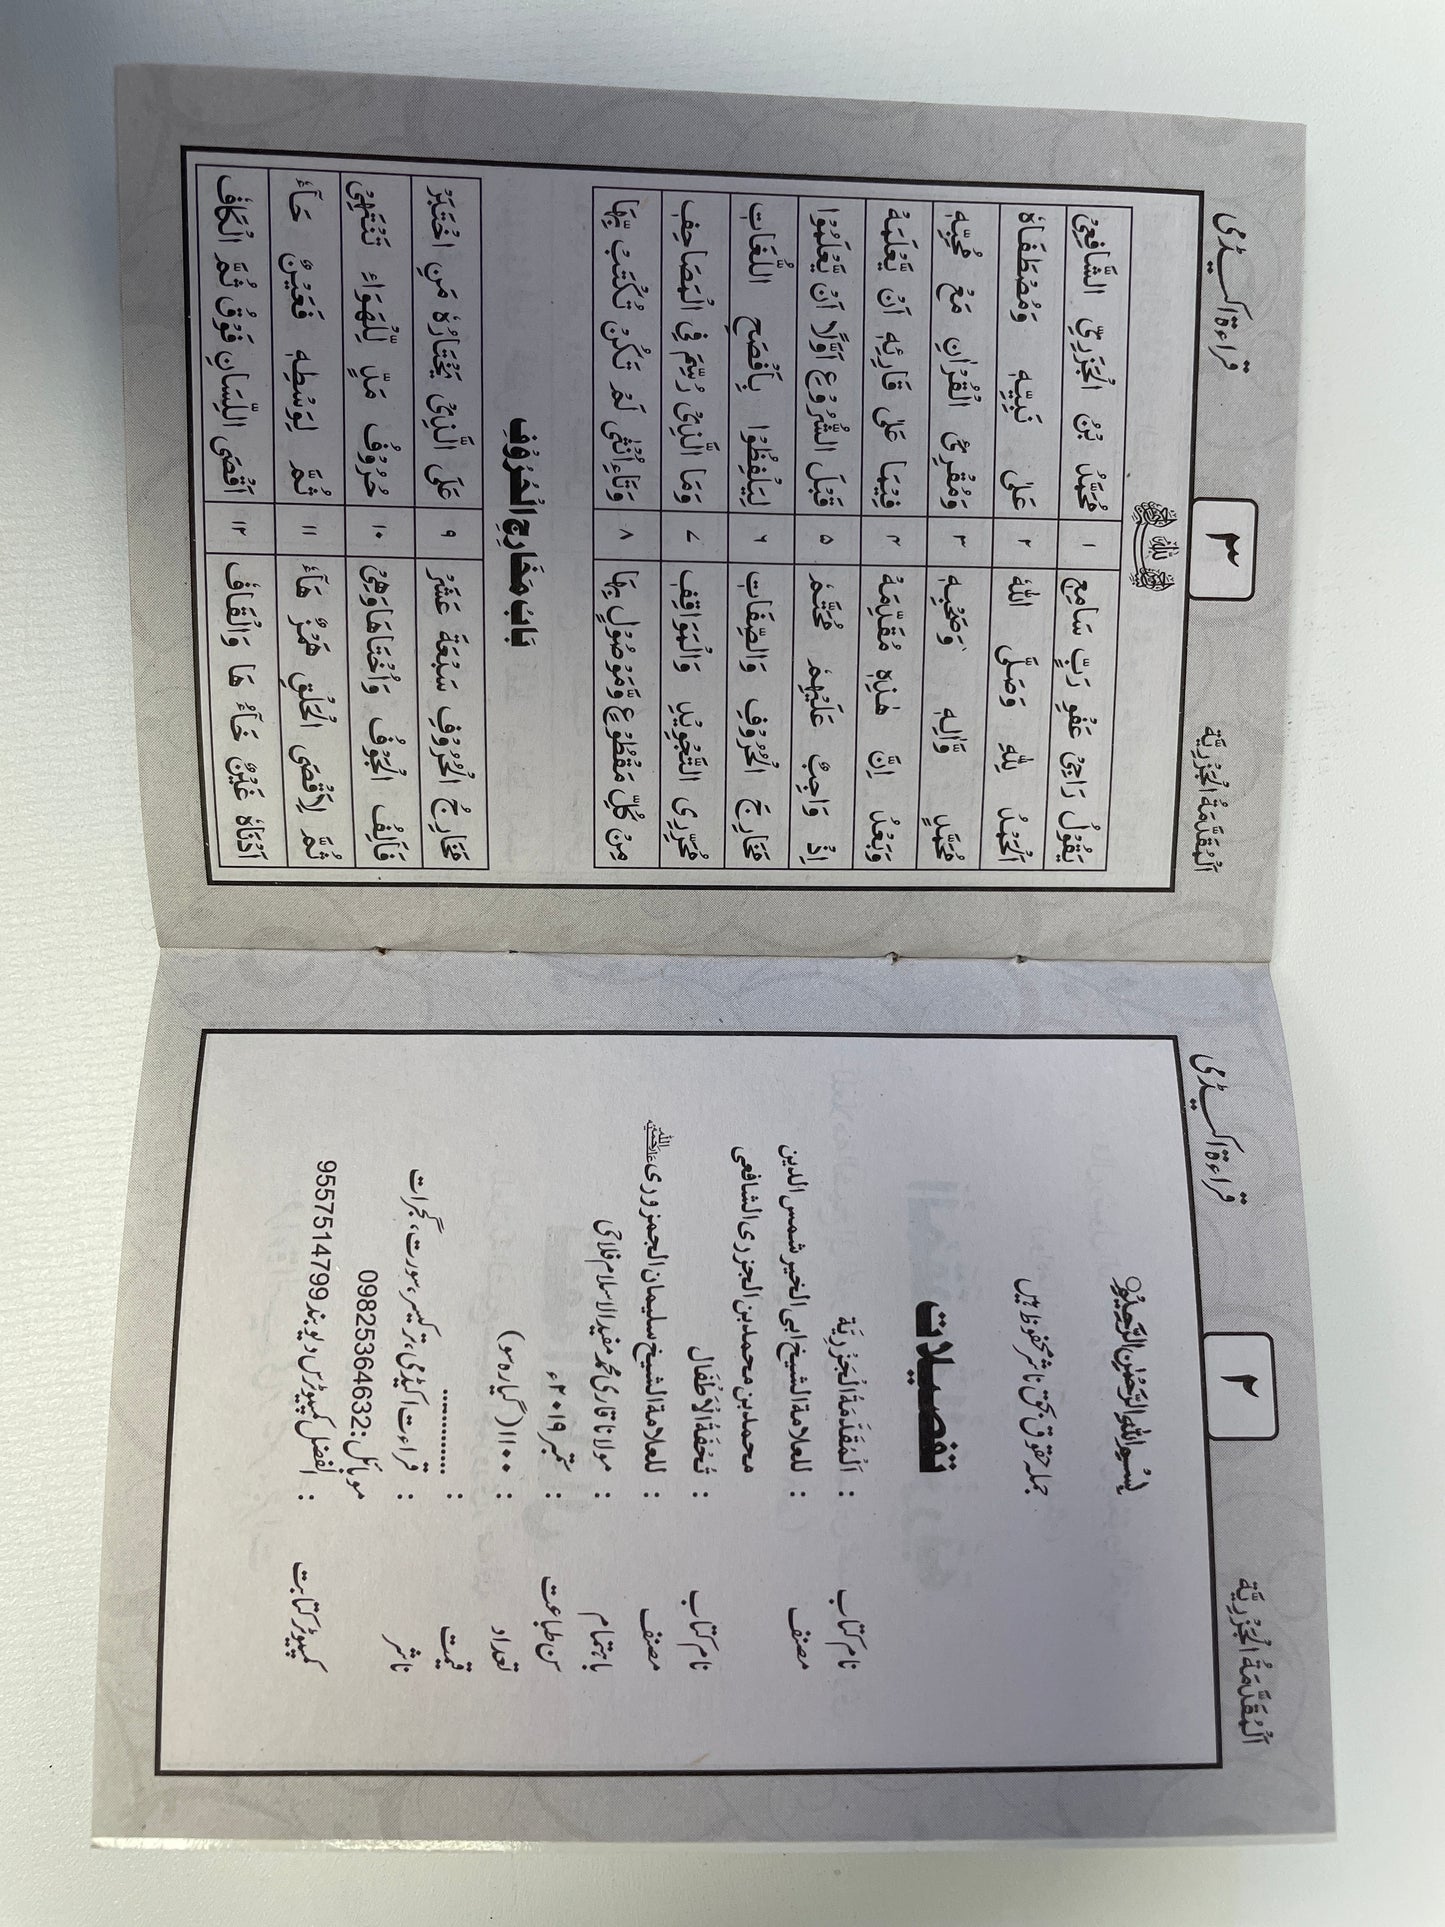 اَلْمُقَدَّمَةُ الْجَزَرِيَّة ٢ قراءۃ اکیڈمی
بِسْمِ اللهِ الرَّحْمٰنِ الرَّحِيْمِ
جملہ حقوق بحق ناشر محفوظ ہیں
تفصیلات
نام کتاب : اَلْمُقَدَّمَةُ الْجَزَرِيَّة
مصنف : للعلامة الشیخ ابی الخیر شمس الدین
محمد بن محمد بن الجزری الشافعی
نام کتاب : تُحْفَةُ الْاَطْفَال
مصنف : للعلامة الشیخ سلیمان الجمزوری رحمۃ اللہ علیہ
باہتمام : مولانا قاری محمد مفید الاسلام فلاحی
سن طباعت : ستمبر ٢٠١٩ء
تعداد : ١١٠٠ (گیارہ سو)
قیمت : .............
ناشر : قراءت اکیڈمی، ترکیسر، سورت، گجرات
موبائل: 09825364632
کمپیوٹر کتابت : الفضل کمپیوٹرس دیوبند 9557514799
اَلْمُقَدَّمَةُ الْجَزَرِيَّة ٣ قراءۃ اکیڈمی
يَقُوْلُ رَاجِىْ عَفْوِ رَبٍّ سَامِعِ ١ مُحَمَّدُ بْنُ الْجَزَرِيِّ الشَّافِعِىْ
اَلْحَمْدُ لِلّٰهِ وَصَلَّى اللّٰهُ ٢ عَلٰى نَبِيِّهٖ وَمُصْطَفَاهُ
مُحَمَّدٍ وَّاٰلِهٖ وَصَحْبِهٖ ٣ وَمُقْرِئِ الْقُرْاٰنِ مَعْ مُحِبِّهٖ
وَبَعْدُ اِنَّ هٰذِهٖ مُقَدِّمَهْ ٤ فِيْمَا عَلٰى قَارِئِهٖ اَنْ يَّعْلَمَهْ
اِذْ وَاجِبٌ عَلَيْهِمْ مُحَتَّمْ ٥ قَبْلَ الشُّرُوْعِ اَوَّلًا اَنْ يَّعْلَمُوْا
مَخَارِجَ الْحُرُوْفِ وَالصِّفَاتِ ٦ لِيَلْفِظُوْا بِاَفْصَحِ اللُّغَاتِ
مُحَرِّرِى التَّجْوِيْدِ وَالْمَوَاقِفِ ٧ وَمَا الَّذِىْ رُسِّمَ فِى الْمَصَاحِفِ
مِنْ كُلِّ مَقْطُوْعٍ وَّمَوْصُوْلٍ بِهَا ٨ وَتَاءِ اُنْثٰى لَمْ تَكُنْ تُكْتَبْ بِّهَا
بَابُ مَخَارِجِ الْحُرُوْفِ
مَخَارِجُ الْحُرُوْفِ سَبْعَةَ عَشَرْ ٩ عَلَى الَّذِىْ يَخْتَارُهٗ مَنِ اخْتَبَرْ
فَاَلِفُ الْجَوْفُ وَاُخْتَاهَا وَهِىْ ١٠ حُرُوْفُ مَدٍّ لِّلْهَوَاءِ تَنْتَهِىْ
ثُمَّ لِاَقْصَى الْحَلْقِ هَمْزٌ هَآءُ ١١ ثُمَّ لِوَسْطِهٖ فَعَيْنٌ حَآءُ
اَدْنَاهُ غَيْنٌ خَآءُهَا وَالْقَافُ ١٢ اَقْصَى اللِّسَانِ فَوْقُ ثُمَّ الْكَافُ